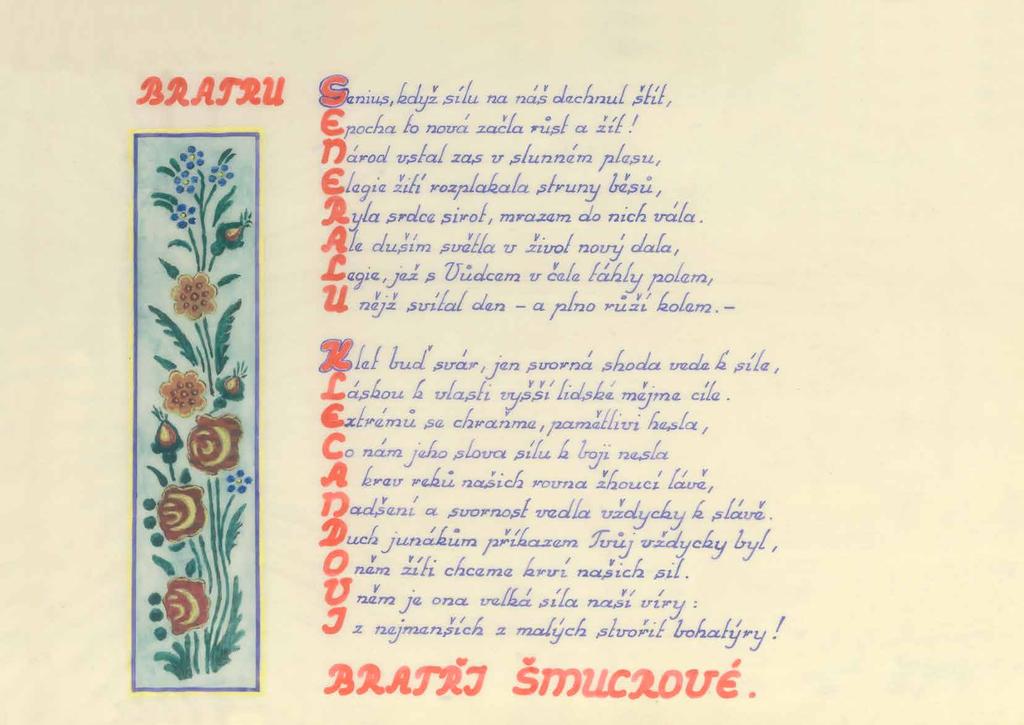 BRATRU
Genius, když sílu na náš dechnul štít,
Epocha to nová začla růst a žít!
Národ vstal zas v slunném plesu,
Elegie žití rozplakala struny běsů,
Ryla srdce sirot, mrazem do nich vála.
Ale duším světla v život nový dala,
Legie, jež s Vůdcem v čele táhly polem,
U nějž svítal den – a plno růží kolem. –
Klet buď svár, jen svorná shoda vede k síle,
Láskou k vlasti vyšší lidské mějme cíle.
Extrémů se chraňme, pamětlivi hesla,
Co nám jeho slova sílu k boji nesla
A krev reků našich rovna žhoucí lávě,
Nadšení a svornost vedla vždycky k slávě.
Duch junákům příkazem Tvůj vždycky byl,
O něm žíti chceme krví našich sil.
V něm je ona velká síla naší víry:
I z nejmenších z malých stvořit bohatýry!
BRATŘI ŠMUCROVÉ.